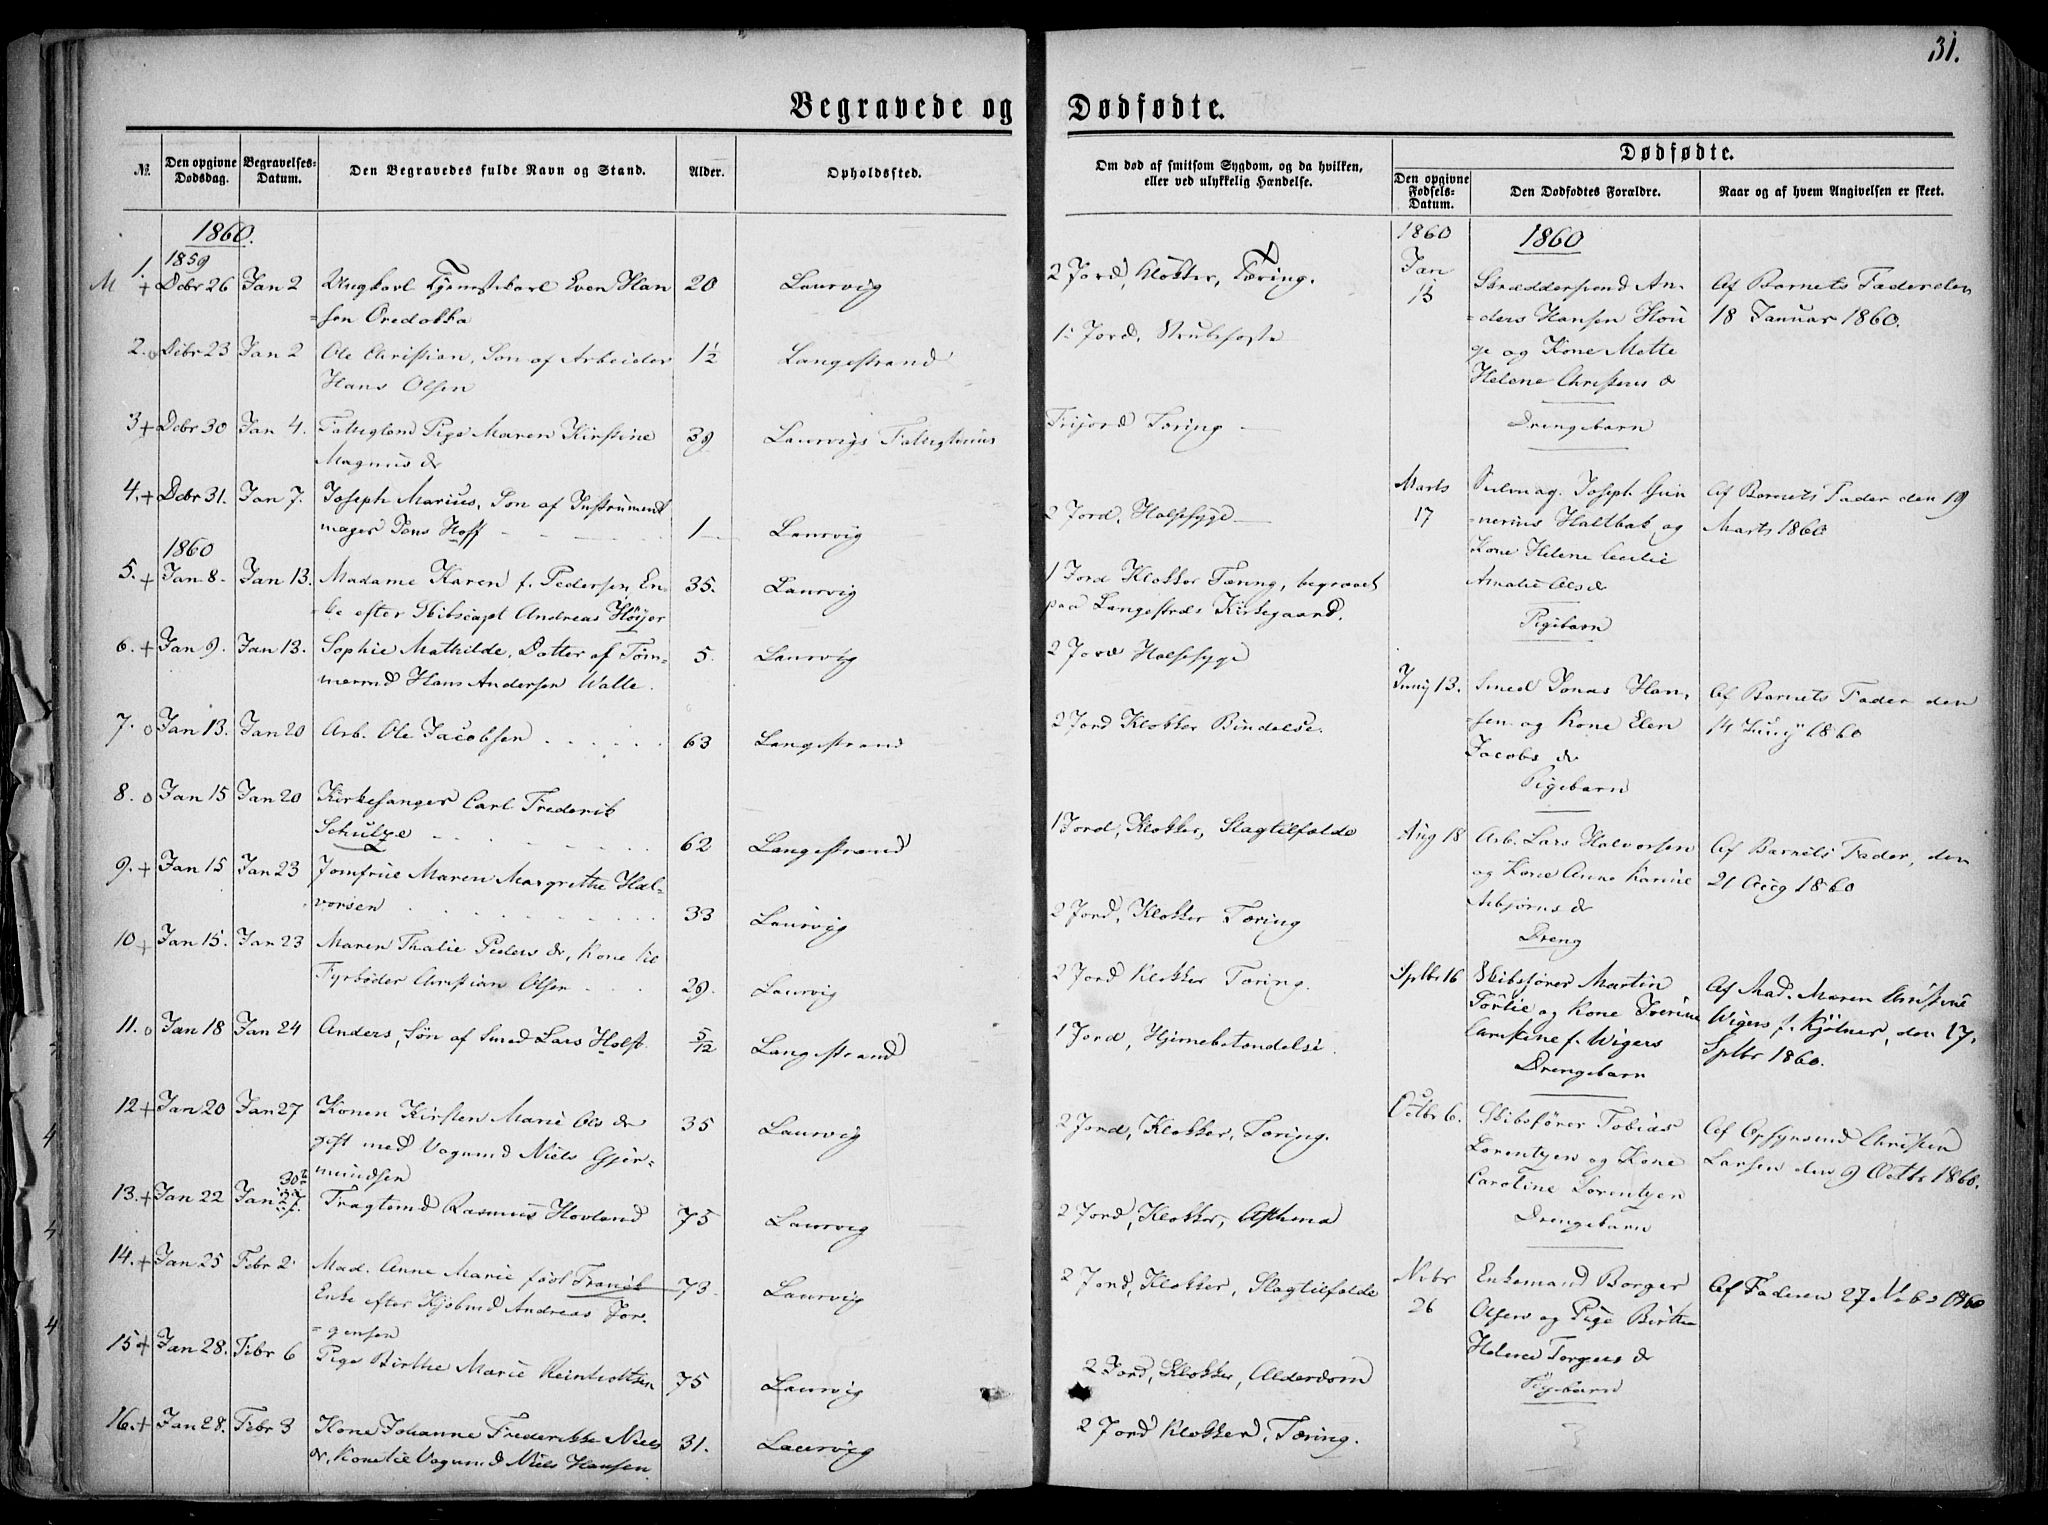 31.
Begravede og Dødfødte.
№.
Den opgivne Dødsdag.
Begravelses-Datum.
Den Begravedes fulde Navn og Stand.
Alder.
Opholdssted.
Om død af smitsom Sygdom, og da hvilken,
eller ved ulykkelig Hændelse.
Dødfødte.
Den opgivne Fødsels-Datum.
Den Dødfødtes Forældre.
Naar og af hvem Angivelsen er skeet.
1860.
1859
M 1. + Dcbr 26 Jan 2 Ungkarl Tjenestekarl Even Han 20 Laurvig 2 Jord, Klokker, Tæring.
=sen Oredokka
2. o Dcbr 23 Jan 2 Ole Christian, Søn af Arbeider 1½ Langestrand 1. Jord, Strubehoste
Hans Olsen
3 + Dcbr 30 Jan 4. Pige Maren Kirstine 39 Laurvigs Frijord Tæring —
Magnus dr
4. + Dcbr 31. Jan 7. Joseph Marius, Søn af Instrument
mager Jens Hoff 1 Laurvig 2 Jord, Halssyge —
1860
5. + Jan 8. Jan 13. Madame Karen f. Pedersen, En- 35. Laurvig 1 Jord Klokker Tæring, begravet
=ke efter Skibscapt Andreas Höyer paa Langestrds Kirkegaard.
6. + Jan 9. Jan 13. Sophie Mathilde, Datter af Töm- 5. Laurvig 2 Jord Halssyge
mermd Hans Andersen Walle.
7. o Jan 13. Jan 20 Arb. Ole Jacobsen 63 Langestrand 2 Jord Klokker Bindelse.
8. o Jan 15 Jan 20 Kirkesanger Carl Frederik
Schulze 62 Langestrand 1 Jord, Klokker, Slagtilfælde
9. + Jan 15 Jan 23 Jomfrue Maren Margrethe Hal-
vorsen 33 Laurvig 2 Jord, Klokker Tæring
10 + Jan 15. Jan 23 Maren Thalie Peders dr, Kone til
Fyrböder Christian Olsen 29. Laurvig 2 Jord Klokker Tæring.
11. o Jan 18 Jan 24 Anders, Søn af Smed Lars Holst. 5/12 Langestrand 1 Jord, Hjernebetændelse.
12 + Jan 20 Jan 27 Konen Kirsten Marie Ols dr 35 Laurvig 2 Jord, Klokker, Tæring.
gift med Vognmd Niels Gjer-
mundsen
30
13. + Jan 22 Jan 27 Fragtemd Rasmus Hovland 75 Laurvig 2 Jord, Klokker, Asthma
14. + Jan 25 Febr 2 Mad. Anne Marie född Franck 73 Laurvig 2 Jord, Klokker, Slagtilfælde
Enke efter Kjöbmd Andreas Jör-
=gensen
15 + Jan 28. Febr 6 Pige Birthe Marie Reinholtsen 75 Laurvig 2 Jord, Klokker, Alderdom
16. + Jan 28. Febr 3 Kone Johanne Frederikke Niels 31. Laurvig 2 Jord Klokker, Tæring.
dr, Kone til Vognmd Niels Hansen
1860 1860
Jan 13 Skræddersvend An-
=ders Hansen Hou
ge og Kone Mette
Helene Christens dr
Drengebarn
Af Barnets Fader den
18 Januar 1860.
Marts 17 Joseph Gun
=nerius Haltbak og
Kone Helene Cecilie
Amalie Olsdr
Pigebarn
Af Barnets Fader den 19
Marts 1860
Juny 13. Smed Jonas Han-
=sen og Kone Elen
Jacobs dr
Pigebarn
Af Barnets Fader den
14 Juny 1860
Aug 18 Arb. Lars Halvorsen
og Kone Anne Karine
Asbjörns dr
Dreng
Af Barnets Fader, den
21 Aug 1860
Sptbr 16 Skibsfører Martin
og Kone Iverine
f. Wigers
Drengebarn
Af Mad. Maren Christine
Wigers f. Kjölner, den 17.
Sptbr 1860.
Octbr 6. Skibsfører Tobias
Lorentzen og Kone
Caroline Lorentzen
Drengebarn
Af Opsynsmd Christen
Larsen den 9 Octbr 1860.
Nvbr 26 Enkemand Borger
Olsen og Pige Birthe
Helene Torgers dr
Pigebarn
Af Faderen 27 Nvbr 1860